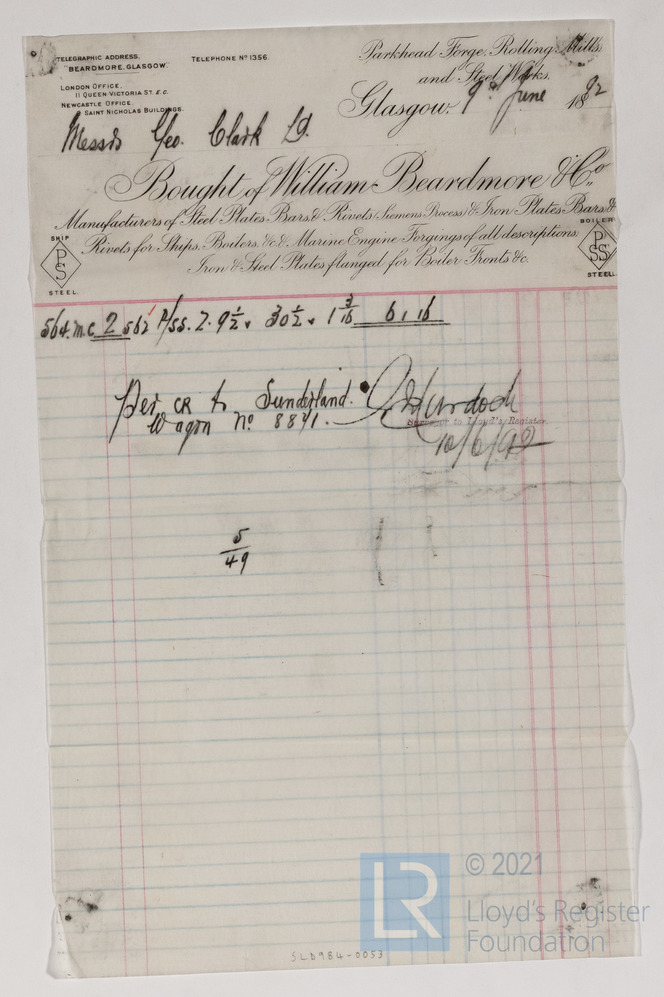 TELEGRAPHIC ADDRESS.
"BEARDMORE, GLASGOW."
TELEPHONE Nº 1356.
LONDON OFFICE,
11 QUEEN VICTORIA ST. E.C.
NEWCASTLE OFFICE,
SAINT NICHOLAS BUILDINGS.
Parkhead Forge, Rolling Mills,
and Steel Works.
Glasgow. 9th June 1892
Messrs Geo. Clark Ld.
Bought of William Beardmore & Co.,
Manufacturers of Steel Plates, Bars & Rivets (Siemens Process) & Iron Plates, Bars &
Rivets for Ships, Boilers, &c & Marine Engine Forgings of all descriptions.
Iron & Steel Plates flanged for Boiler Fronts &c.
SHIP
PS
STEEL
BOILER
PSS
STEEL
564. m.c 2 562 P/ss. 2. 9 1/2 x 30 1/2 x 1 3/16 6 1 16
Per CR to Sunderland.
Wagon Nº 8871.
Murdoch
Surveyor to Lloyd's Register.
10/6/92
5/49
LR
© 2021
Lloyd's Register
Foundation
SLD984-0053